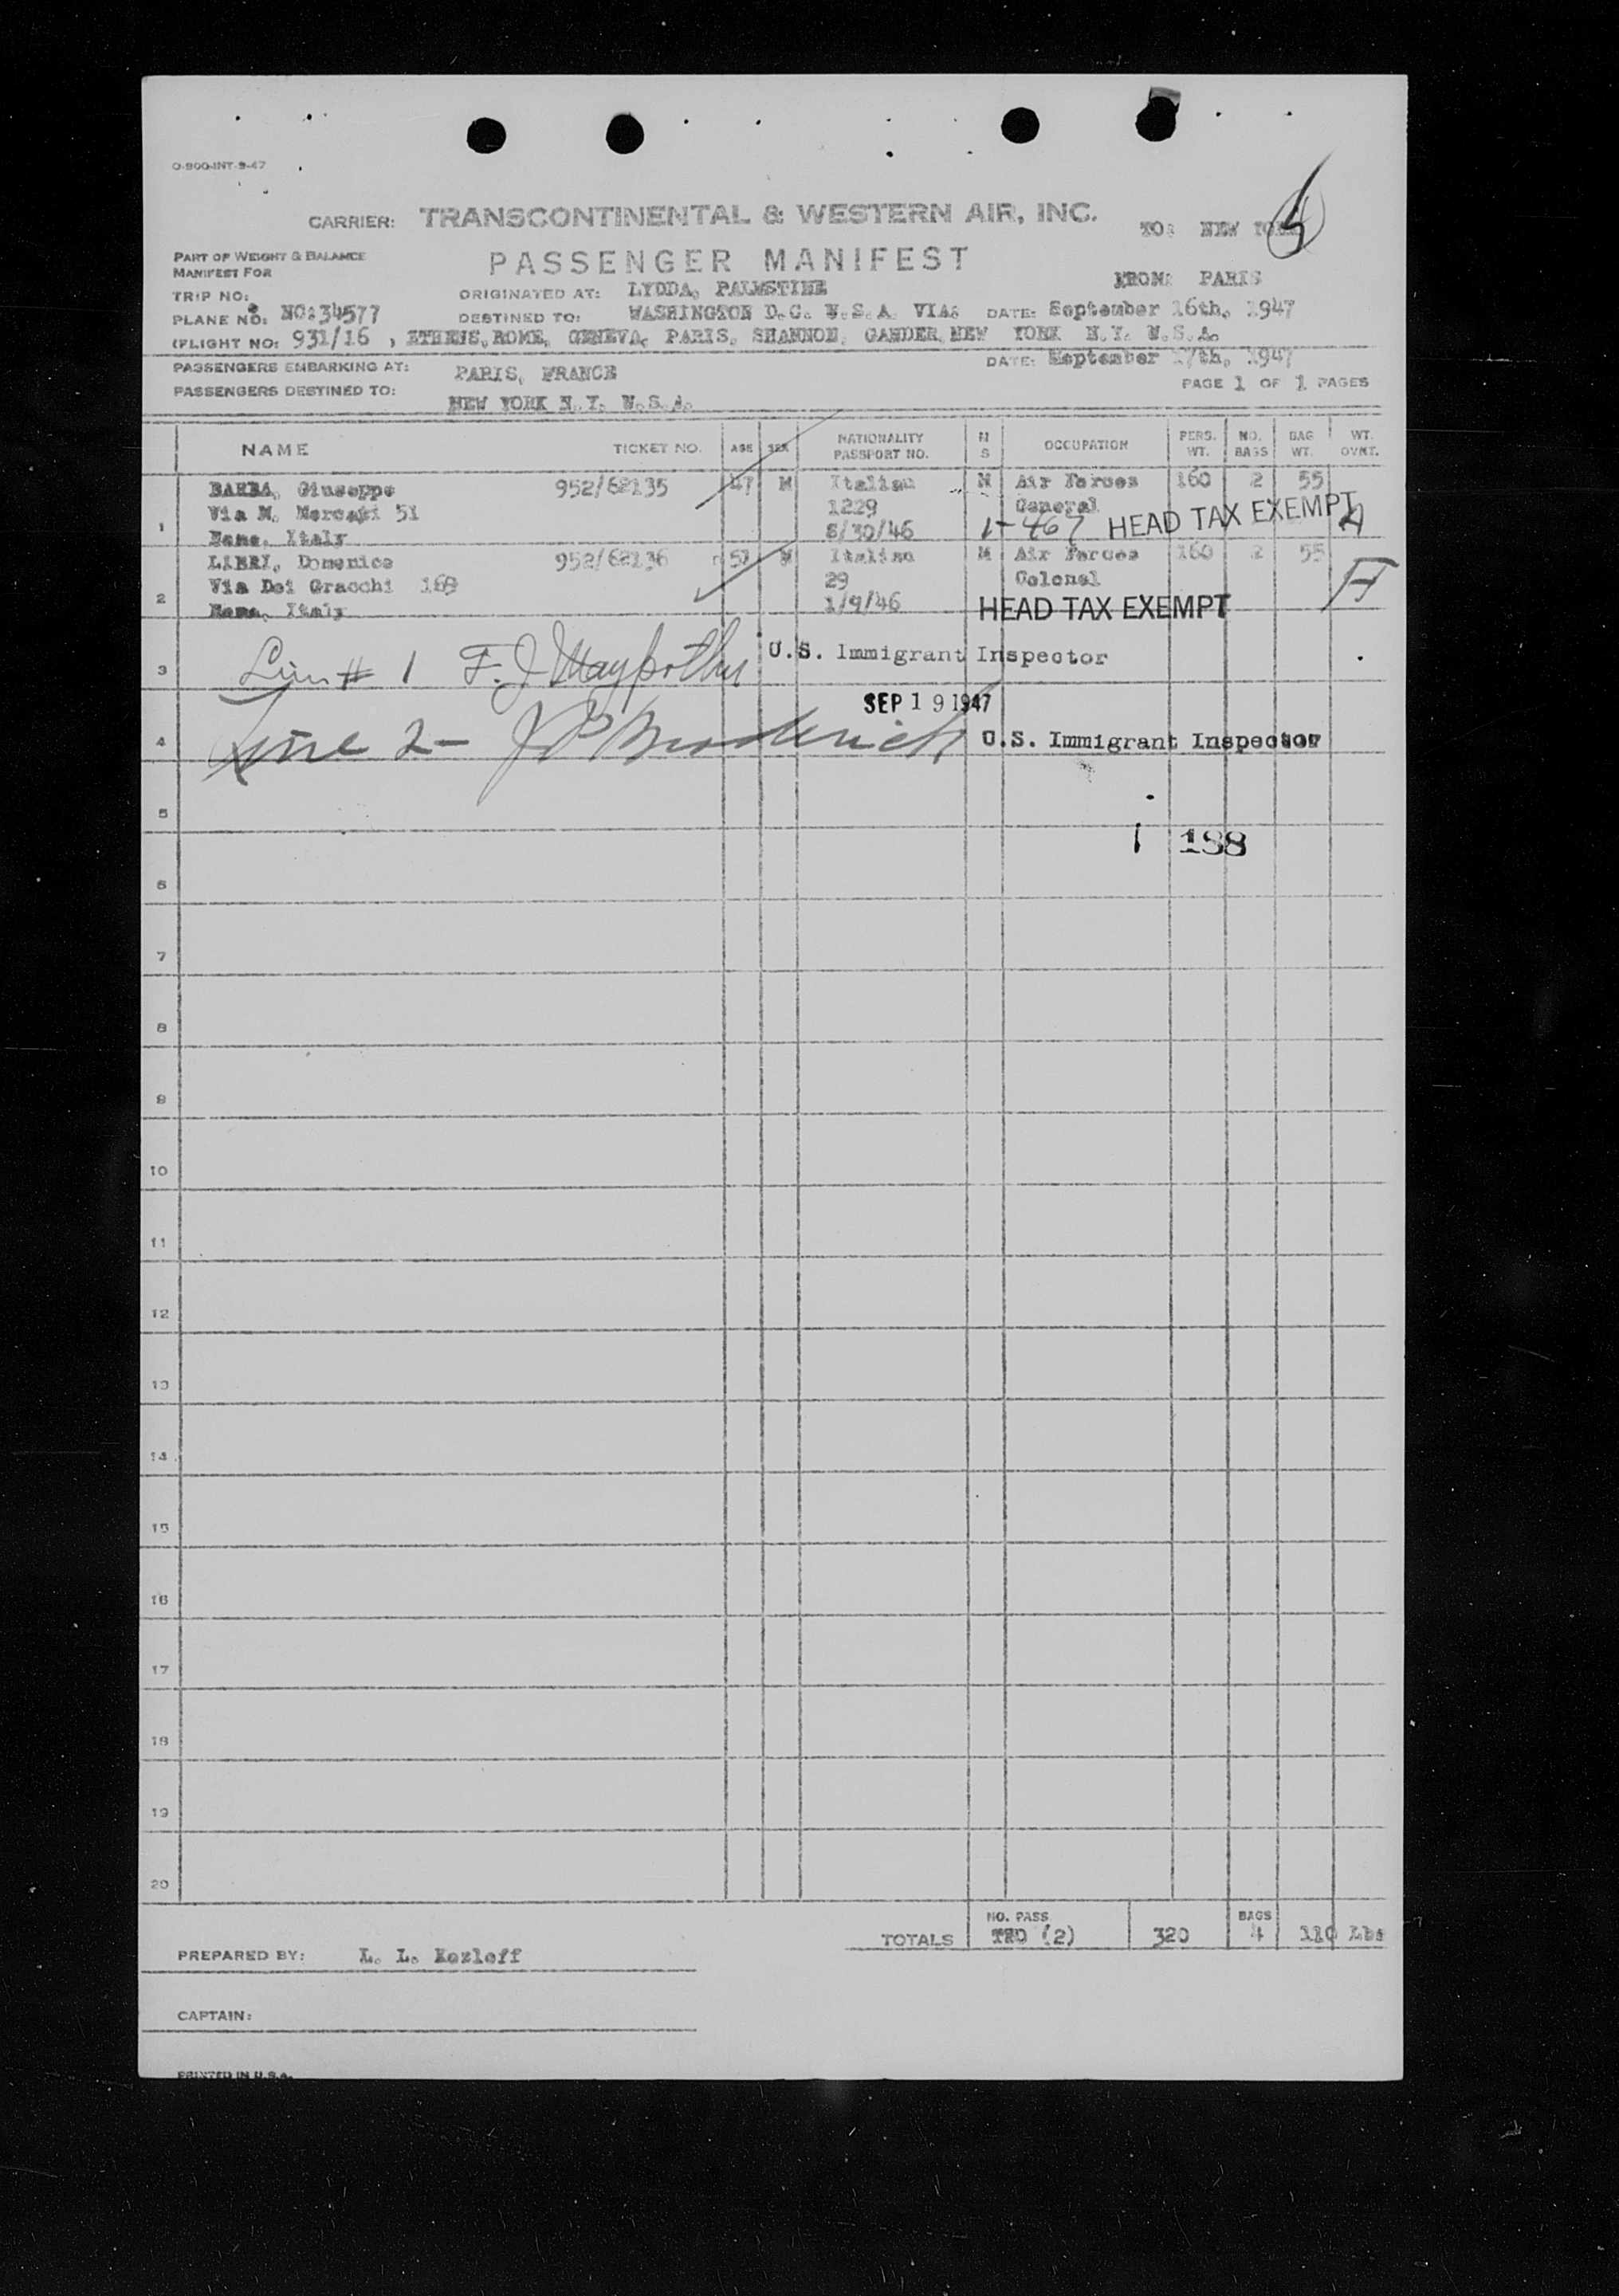 O-900-INT-9-47
CARRIER: TRANSCONTINENTAL & WESTERN AIR, INC. TO: NEW YORK 5
PART OF WEIGHT & BALANCE
MANIFEST FOR
PASSENGER MANIFEST FROM: PARIS
TRIP NO: ORIGINATED AT: LYDDA, PALESTINE
PLANE NO: NO:34577 DESTINED TO: WASHINGTON D.C. U.S.A. VIA: DATE: September 16th, 1947
(FLIGHT NO: 931/16 , ATHENS, ROME, GENEVA, PARIS, SHANNON, GANDER, NEW YORK N.Y. U.S.A.
PASSENGERS EMBARKING AT: PARIS, FRANCE DATE: September 17th, 1947
PASSENGERS DESTINED TO: NEW YORK N.Y. U.S.A. PAGE 1 OF 1 PAGES
NAME TICKET NO. AGE SEX NATIONALITY PASSPORT NO. M S OCCUPATION PERS. WT. NO. BAGS BAG WT. WT. OVNT.
BARBA, Giuseppe 952/62135 47 M Italian M Air Forces 160 2 55
Via M. Mercati 51 1229 General
1 Rome, Italy 8/30/46 1-467 HEAD TAX EXEMPT A
LIBRI, Domenico 952/62136 57 M Italian M Air Forces 160 2 55
Via Dei Gracchi 169 29 Colonel
2 Rome, Italy 1/9/46 HEAD TAX EXEMPT A
3 Line # 1 F. J. U.S. Immigrant Inspector
SEP 19 1947
4 Line 2 - J P Broderick U.S. Immigrant Inspector
5
1 188
6
7
8
9
10
11
12
13
14
15
16
17
18
19
20
TOTALS NO. PASS. TWO (2) 320 BAGS 4 110 Lbs
PREPARED BY: L. L. Kozloff
CAPTAIN:
PRINTED IN U.S.A.